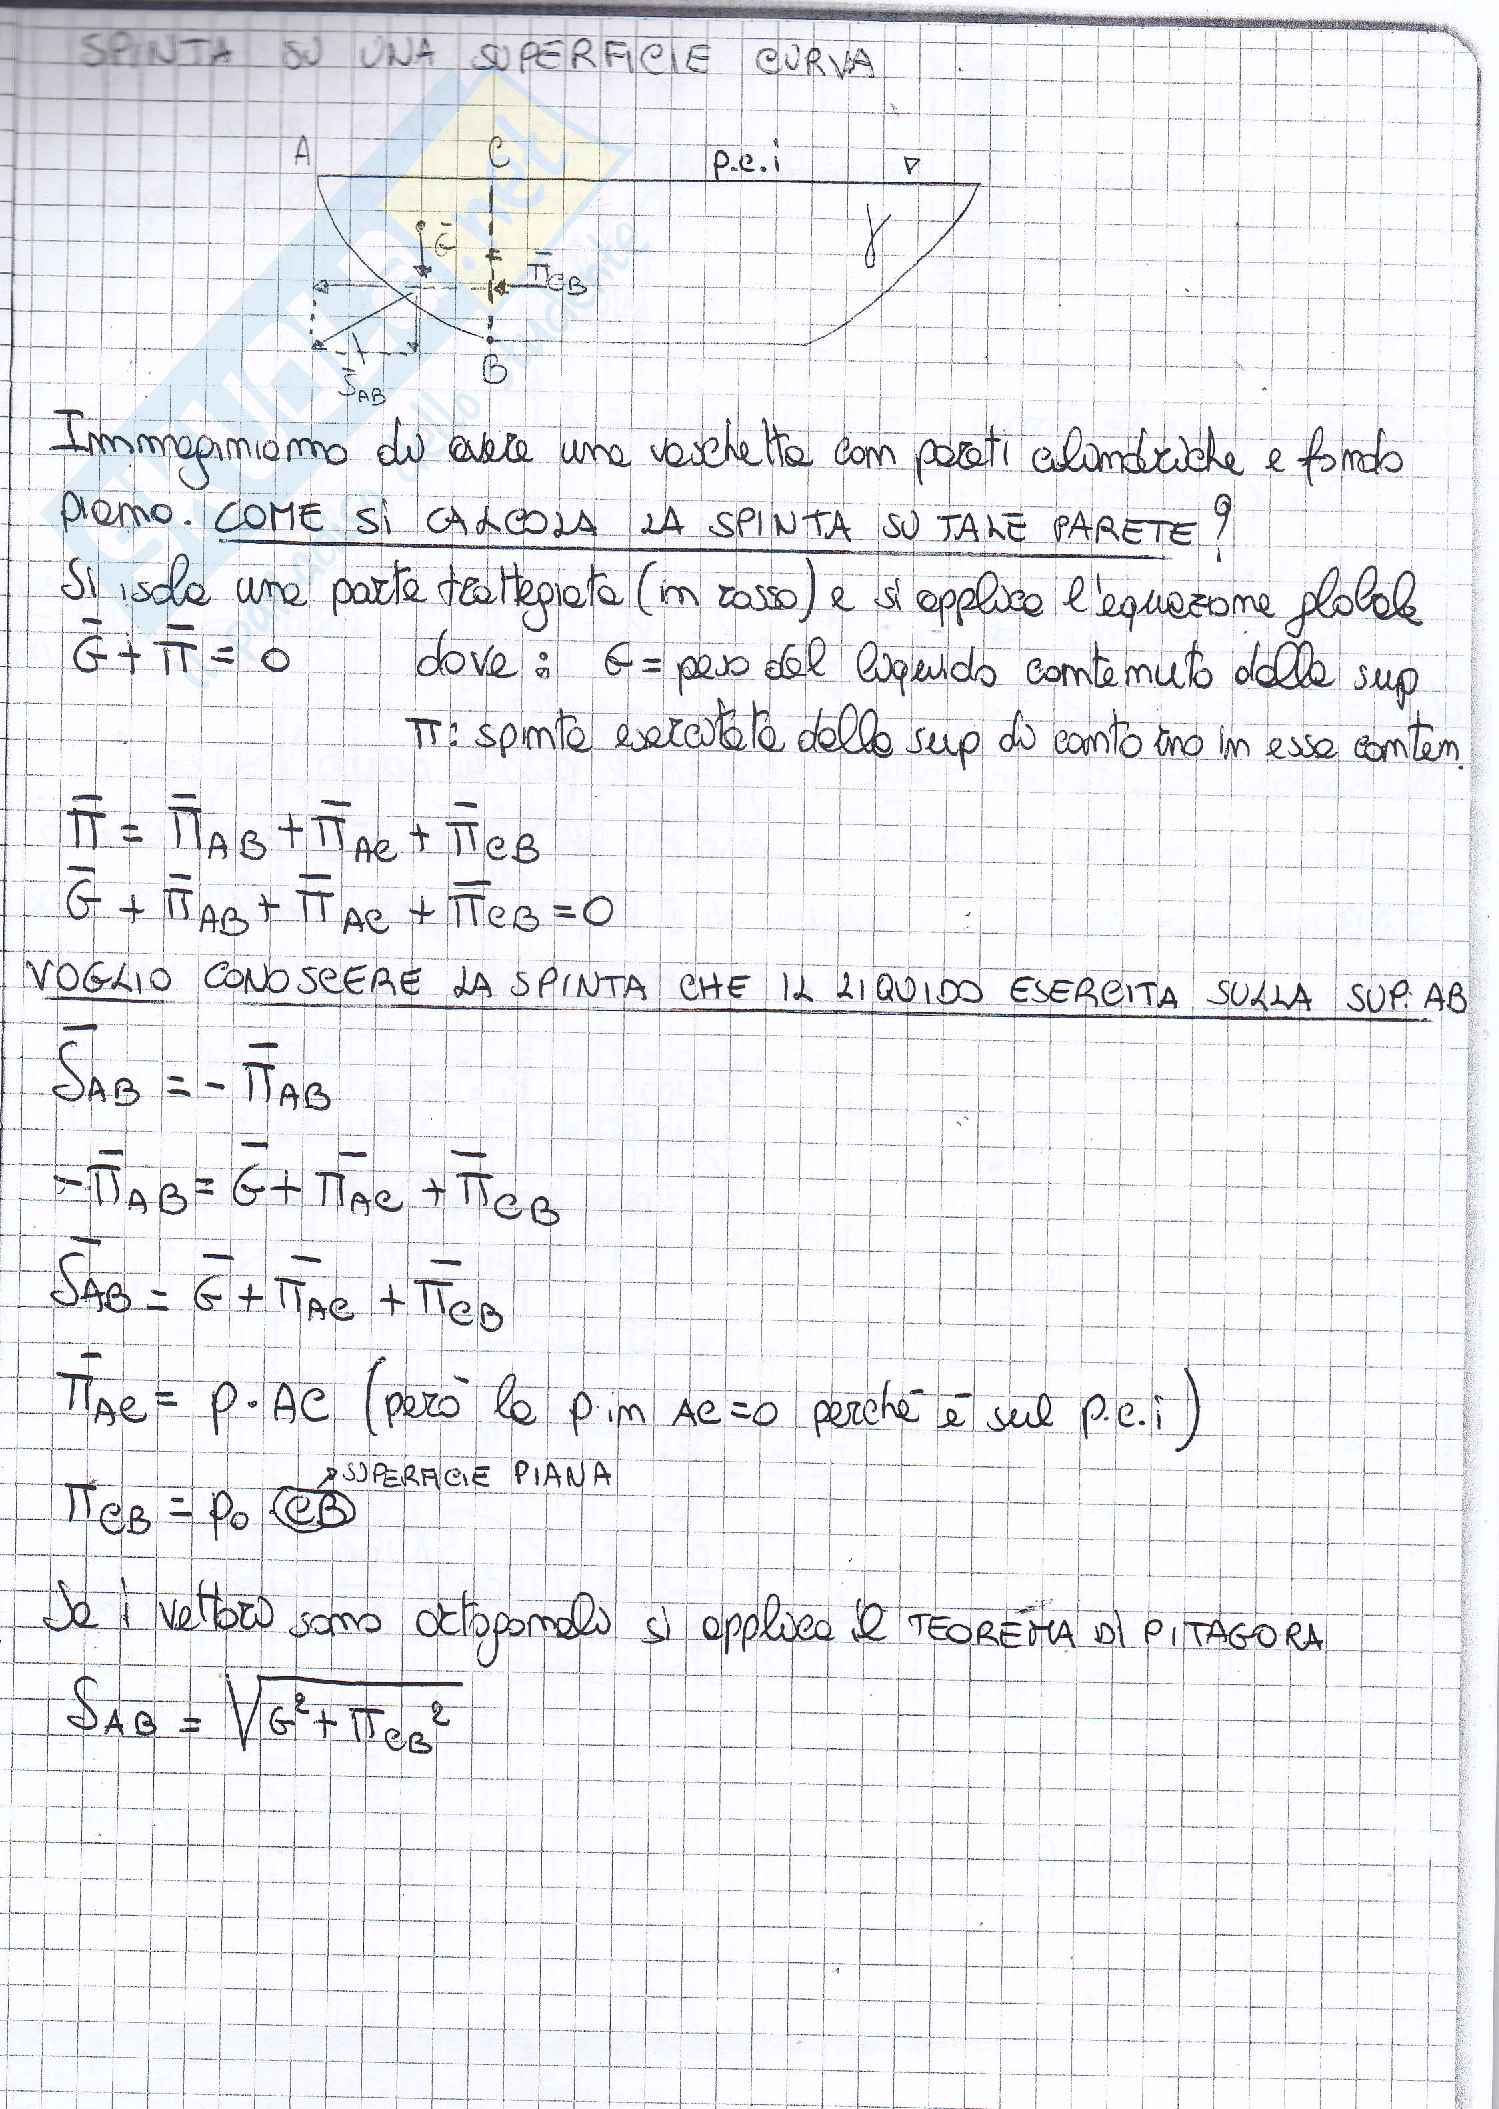 SPINTA SU UNA SUPERFICIE CURVA
A C p.c.i
γ
Ḡ
Π̄CB
S̄AB
B
Immaginiamo di avere una vaschetta con pareti cilindriche e fondo
piano. COME SI CALCOLA LA SPINTA SU TALE PARETE?
Si isola una parte tratteggiata (in rosso) e si applica l'equazione globale
Ḡ + Π̄ = 0 dove: G = peso del liquido contenuto dalla sup
Π: spinta esercitata dalla sup di contorno in essa conten.
Π̄ = Π̄AB + Π̄AC + Π̄CB
Ḡ + Π̄AB + Π̄AC + Π̄CB = 0
VOGLIO CONOSCERE LA SPINTA CHE IL LIQUIDO ESERCITA SULLA SUP. AB
S̄AB = - Π̄AB
- Π̄AB = Ḡ + Π̄AC + Π̄CB
S̄AB = Ḡ + Π̄AC + Π̄CB
Π̄AC = p · AC (però la p in AC = 0 perché è sul p.c.i)
SUPERFICIE PIANA
ΠCB = p0 CB
Se i vettori sono ortogonali si applica il TEOREMA DI PITAGORA
SAB = √G² + ΠCB²